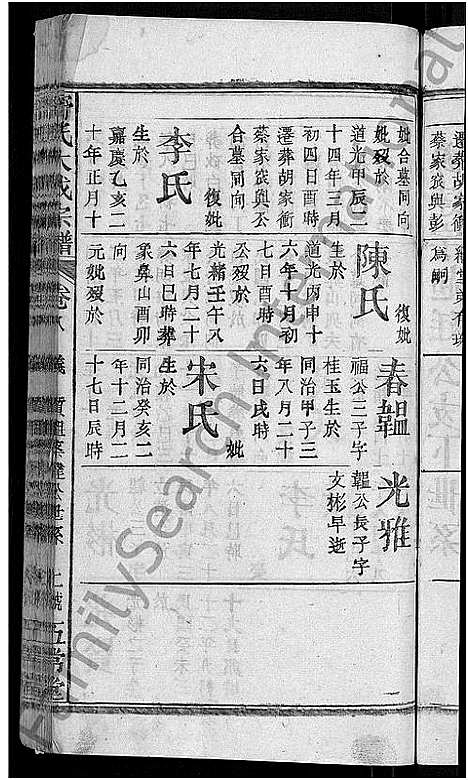 妣合墓同向
妣歿於
道光甲辰二
十四年三月
初四日酉時
遷葬胡家衝
蔡家嵗與公
合墓同向
李氏 復妣
生於
嘉慶乙亥二
十年正月十
陳氏 復妣
生於
道光丙申十
六年十月初
公歿於
光緒壬午八
年七月二十
六日巳時葬
象鼻山酉卯
向
元妣歿於
春韞
福公三子字
桂玉生於
同治甲子三
年八月二十
六日戌時
宋氏 妣
生於
同治癸亥二
年十二月二
十七日辰時
光雅
韞公長子字
文彬早逝
氏大成宗譜
卷八
五常堂
遷葬胡家衝
蔡家嵗與彭
為嗣
FamilySearch International